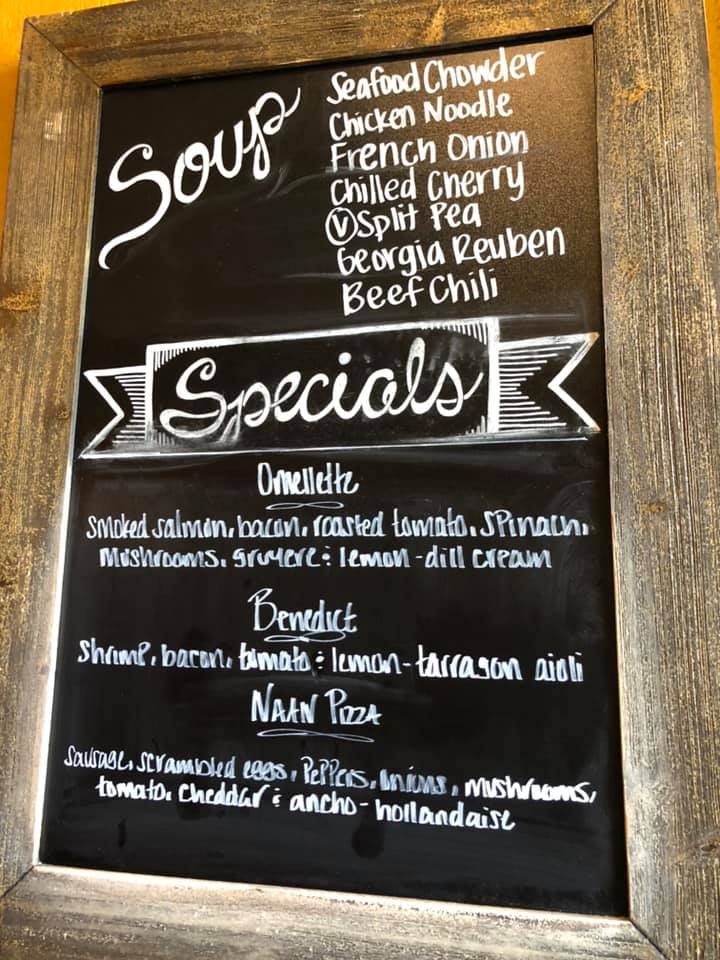 Soup
Seafood Chowder
Chicken Noodle
French Onion
Chilled Cherry
Ⓥ Split Pea
Georgia Reuben
Beef Chili
Specials
Omellette
smoked salmon, bacon, roasted tomato, spinach,
mushrooms, gruyere & lemon-dill cream
Benedict
shrimp, bacon, tomato & lemon-tarragon aioli
NAAN PIZZA
sausage, scrambled eggs, peppers, onions, mushrooms,
tomato, cheddar & ancho-hollandaise